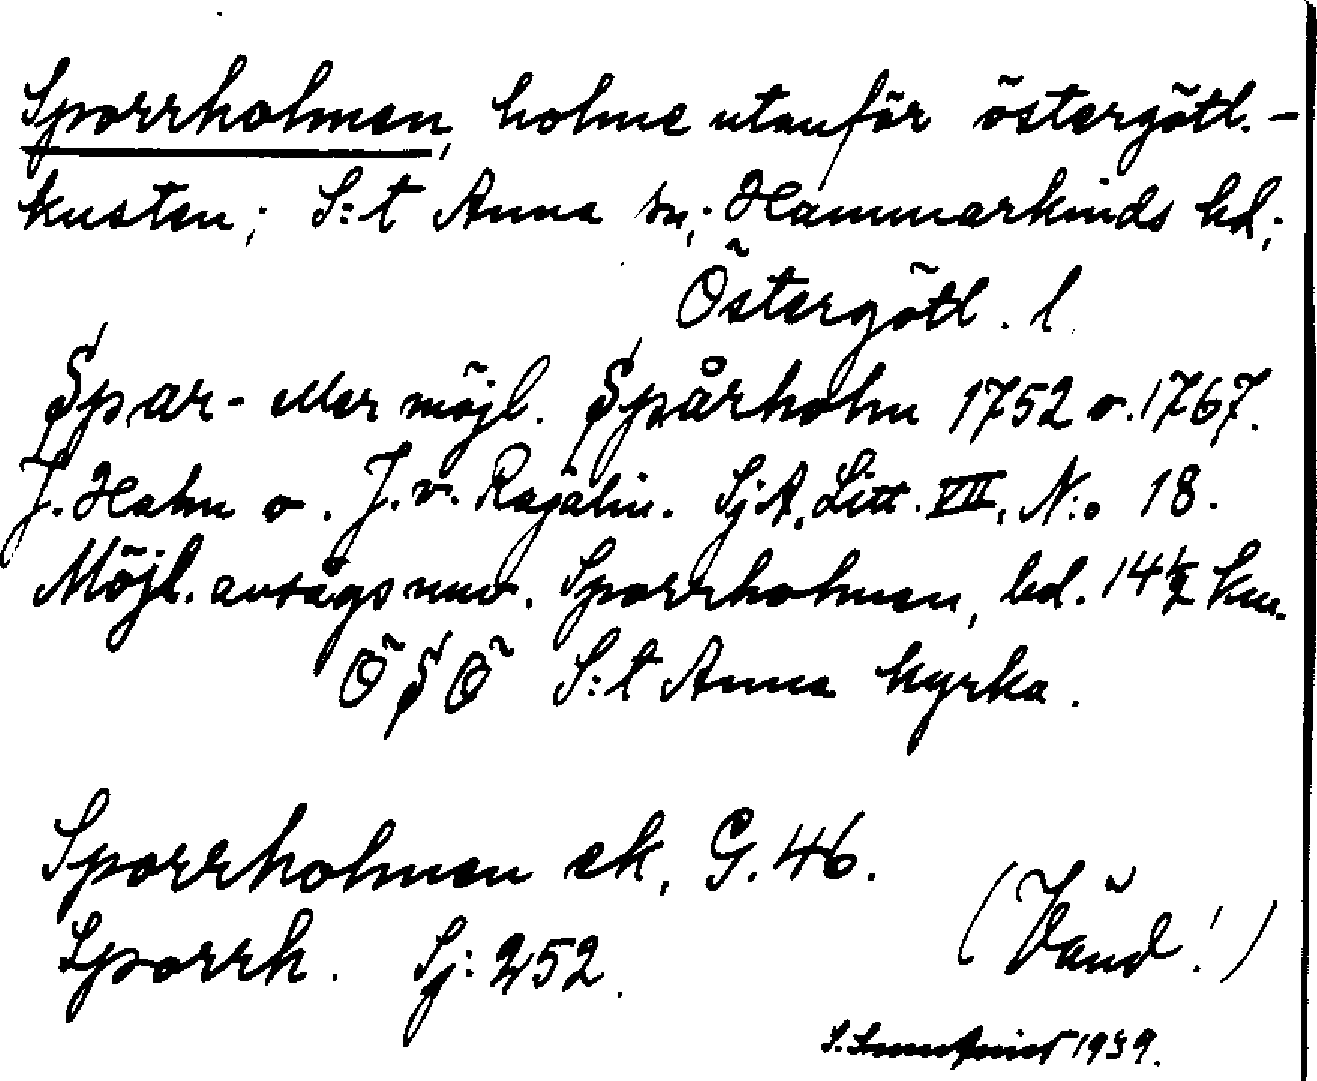 Sporrholmen, holme utanför östergötl.-
kusten; S:t Anna sn; Hammarkinds hd;
Östergötl. l.
Spar- eller möjl. Spårholm 1752 o. 1767.
J. Hahn o. J. v. Rajalin. SjA. Litt. VII, N:o 18.
Möjl. avsågs nuv. Sporrholmen, bel. 14½ km.
Ö S Ö S:t Anna kyrka.
Sporrholmen ek. G. 46.
Sporrh. Sj: 252.
(Vänd!)
S. 1939.